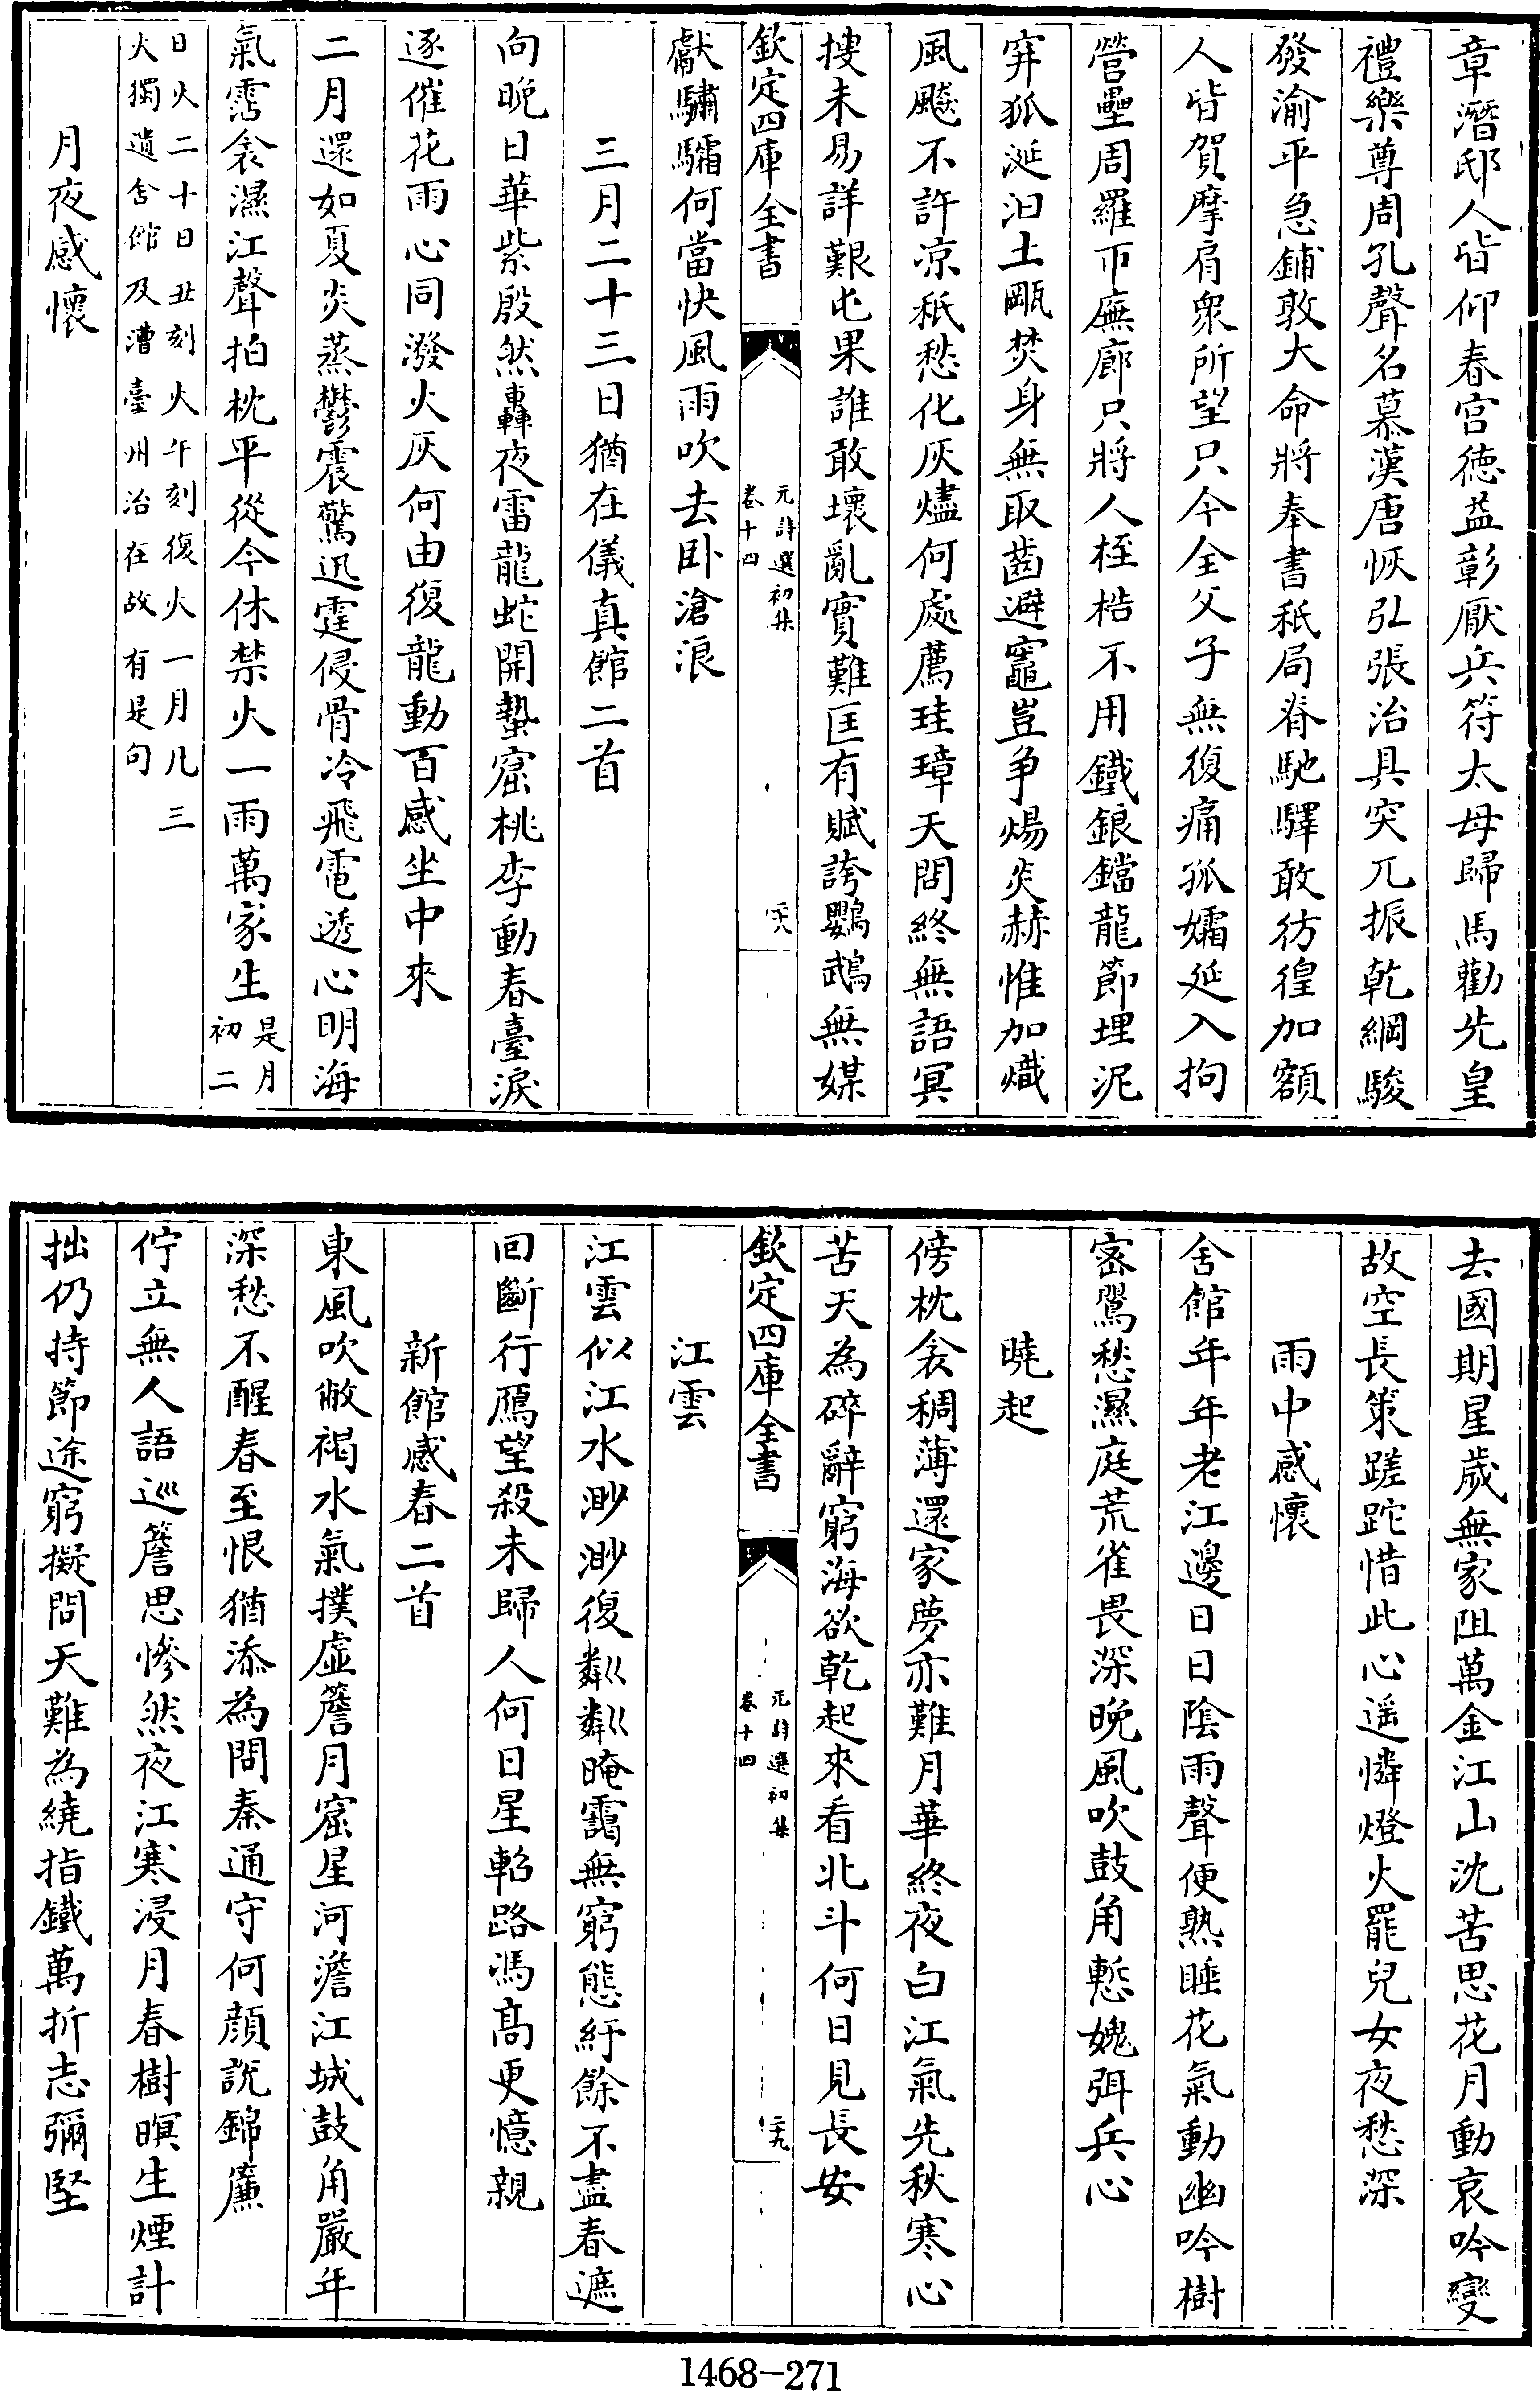 章潛邸人皆仰春宫徳益彰厭兵符太母歸馬勸先皇
禮樂尊周孔聲名慕漢唐恢弘張治具突兀振乾綱駿
發渝平急鋪敦大命將奉書秖局脊馳驛敢彷徨加額
人皆賀摩肩衆所望只今全父子無復痛孤孀延入拘
營壘周羅帀廡廊只將人桎梏不用鐵鋃鐺龍節埋泥
穽狐涎汩土甌焚身無取齒避竈豈爭煬炎赫惟加熾
風飈不許凉秖愁化灰燼何處薦珪璋天問終無語冥
搜未易詳艱屯果誰敢壞亂實難匡有賦誇鸚鵡無媒
欽定四庫全書
元詩選初集
卷十四
二十八
獻驌驦何當快風雨吹去卧滄浪
三月二十三日猶在儀真館二首
向晚日華紫殷然轟夜雷龍蛇開蟄窟桃李動春臺淚
逐催花雨心同潑火灰何由復龍動百感坐中來
二月還如夏炎蒸鬱震驚迅霆侵骨冷飛電透心明海
氣霑衾濕江聲拍枕平從今休禁火一雨萬家生
是月
初二
日火二十日丑刻火午刻復火一月凡三
火獨遺舍館及漕臺州治在故有是句
月夜感懷
去國期星歲無家阻萬金江山沈苦思花月動哀吟變
故空長策蹉跎惜此心遥憐燈火罷兒女夜愁深
雨中感懷
舍館年年老江邊日日隂雨聲便熟睡花氣動幽吟樹
宻鶯愁濕庭荒雀畏深晚風吹鼓角慙媿弭兵心
曉起
傍枕衾稠薄還家夢亦難月華終夜白江氣先秋寒心
苦天為碎辭窮海欲乾起來看北斗何日見長安
欽定四庫全書
元詩選初集
卷十四
二十九
江雲
江雲似江水渺渺復粼粼晻靄無窮態紆餘不盡春遮
回斷行鴈望殺未歸人何日星軺路馮髙更憶親
新館感春二首
東風吹敝褐水氣撲虛簷月窟星河澹江城鼓角嚴年
深愁不醒春至恨猶添為問秦通守何顔說錦簾
佇立無人語巡簷思慘然夜江寒浸月春樹暝生煙計
拙仍持節途窮擬問天難為繞指鐵萬折志彌堅
1468-271